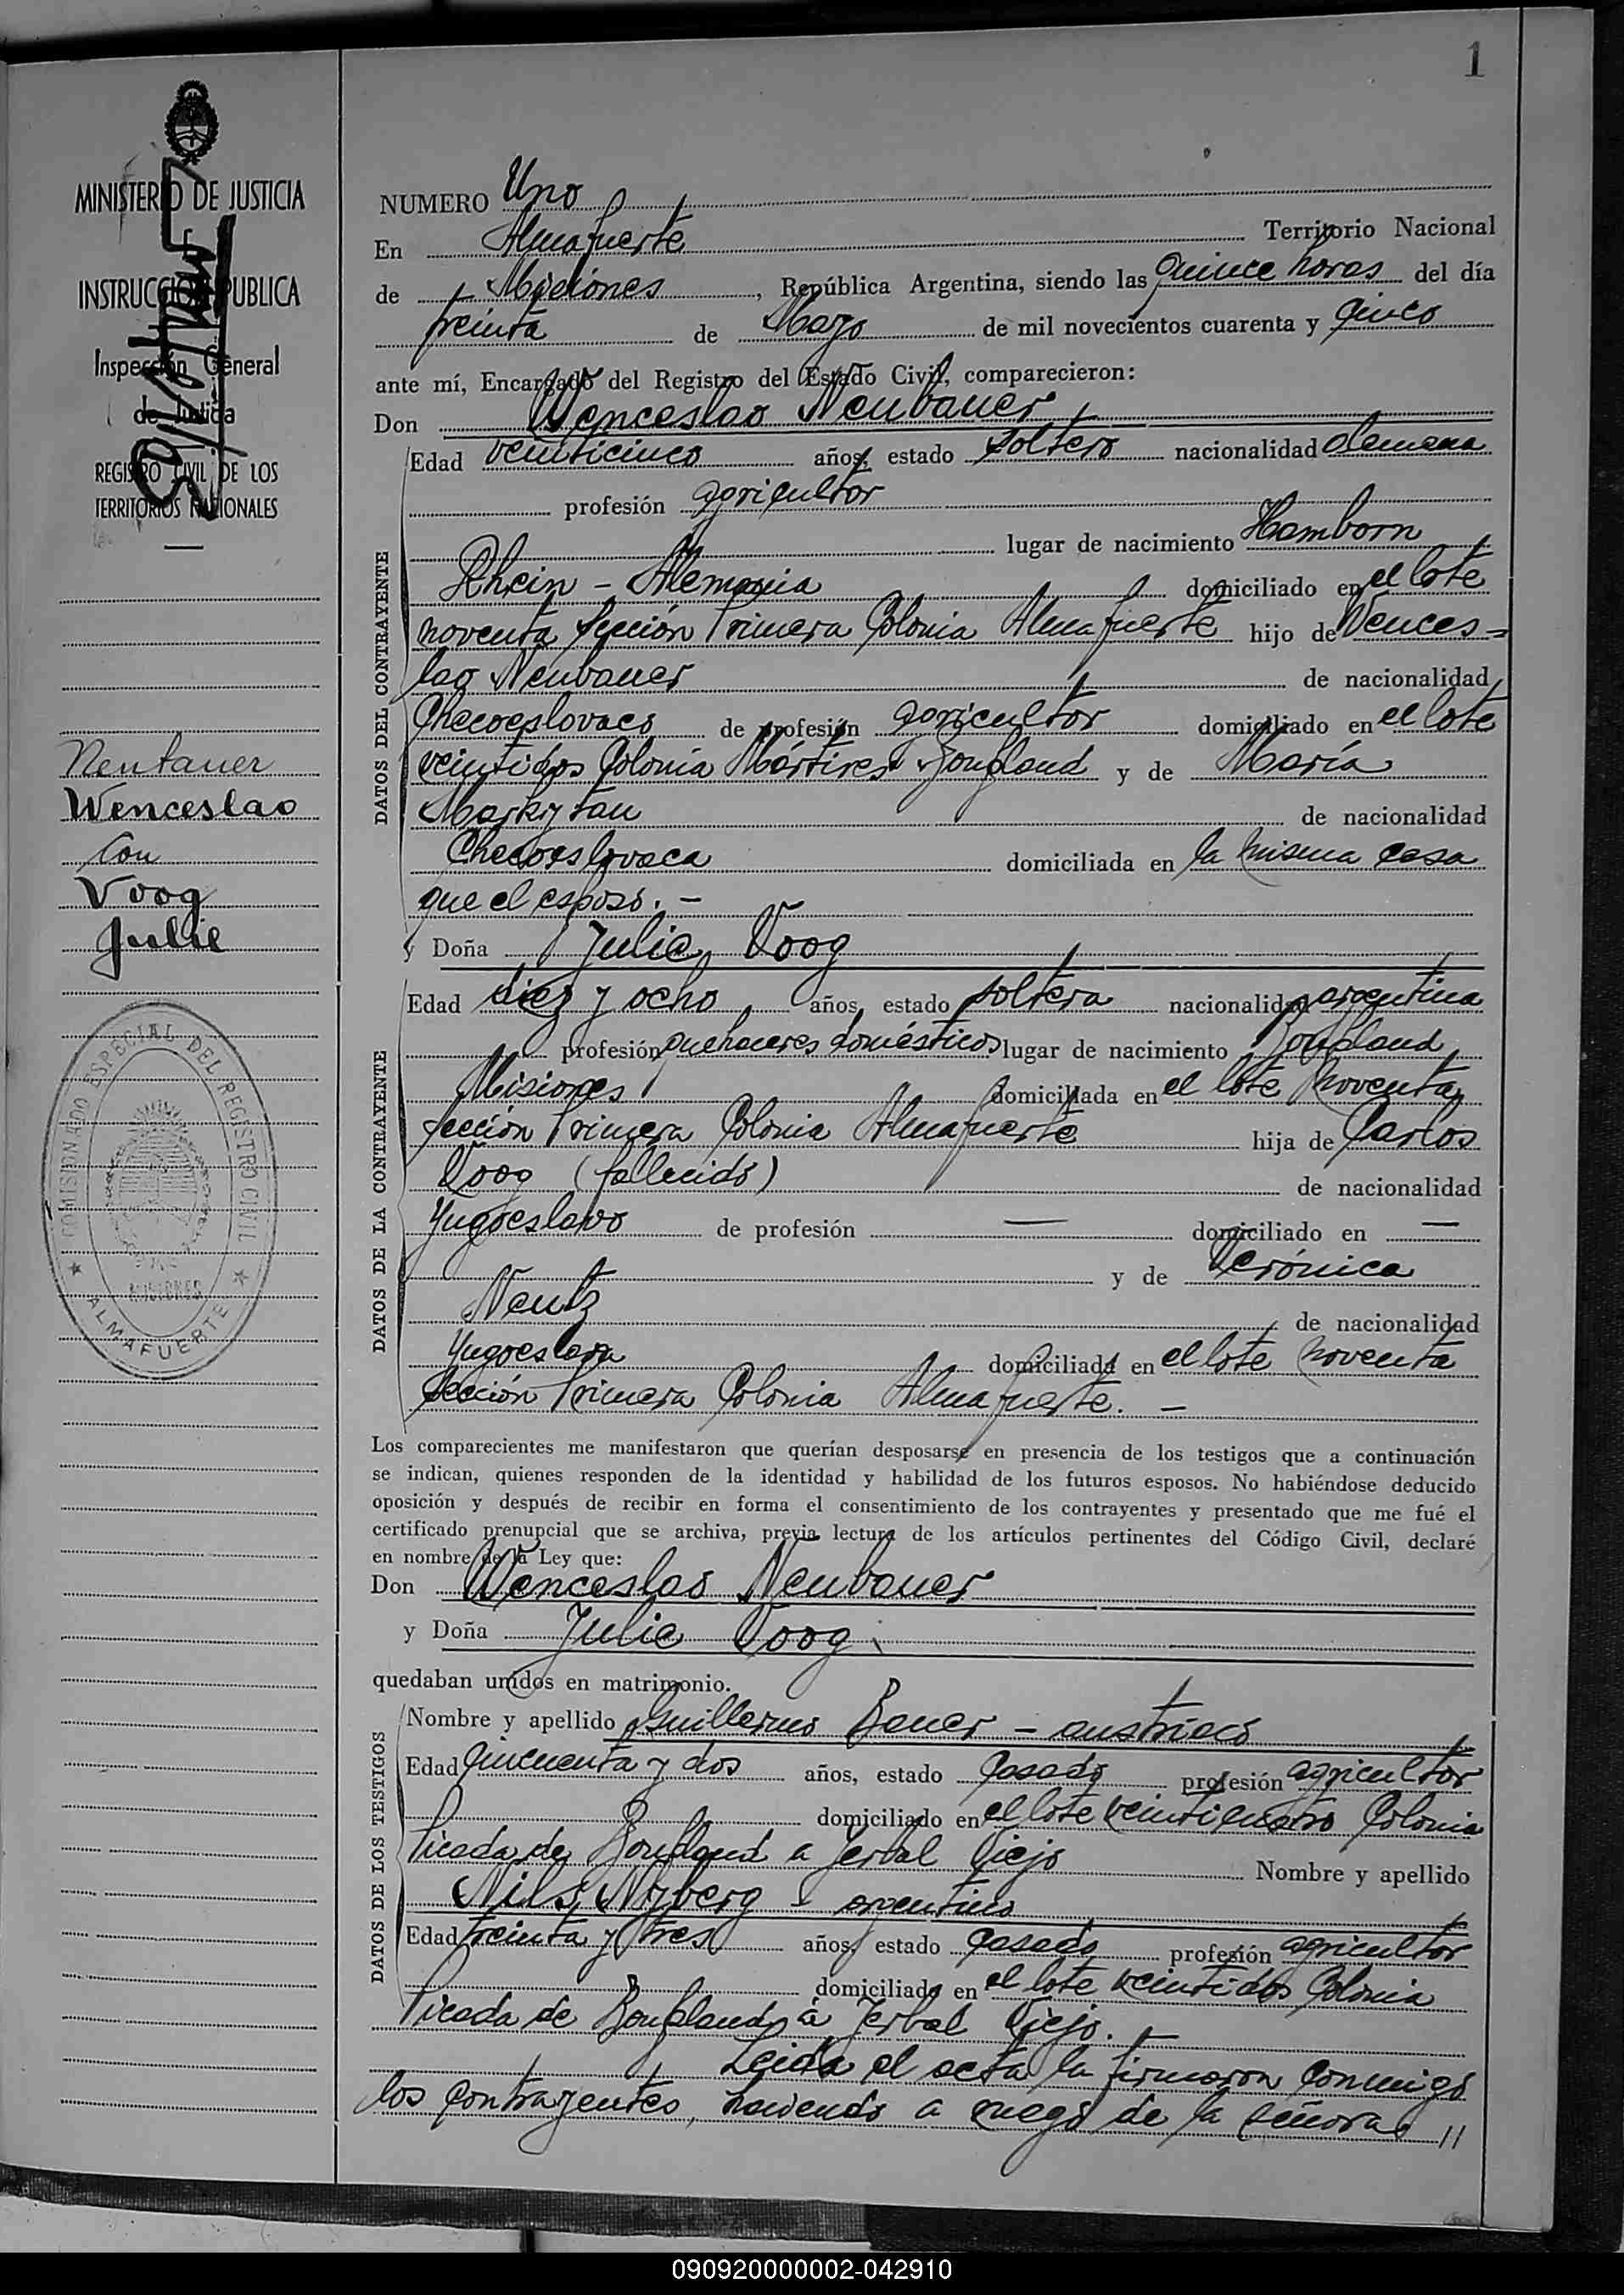 1
MINISTERIO DE JUSTICIA
INSTRUCCION PUBLICA
Inspección General
de Justicia
REGISTRO CIVIL DE LOS
TERRITORIOS NACIONALES
Neubauer
Wenceslao
Con
Voog
Julie
COMISIONADO ESPECIAL DEL REGISTRO CIVIL
MISIONES
★ ALMAFUERTE ★
NUMERO Uno
En Almafuerte Territorio Nacional
de Misiones, República Argentina, siendo las quince horas del día
treinta de Mayo de mil novecientos cuarenta y cinco
ante mí, Encargado del Registro del Estado Civil, comparecieron:
Don Wenceslao Neubauer
DATOS DEL CONTRAYENTE
Edad veinticinco años, estado soltero nacionalidad alemana
profesión agricultor
lugar de nacimiento Hamborn
Rhein - Alemania domiciliado en el lote
noventa Sección Primera Colonia Almafuerte hijo de Wences=
lao Neubauer de nacionalidad
Checoeslovaco de profesión agricultor domiciliado en el lote
veintidos Colonia Mártires Bonpland y de María
de nacionalidad
Checoeslovaca domiciliada en la misma casa
que el esposo. -
y Doña Julie Voog
DATOS DE LA CONTRAYENTE
Edad diez y ocho años, estado soltera nacionalidad argentina
profesión quehaceres domésticos lugar de nacimiento Bonpland
Misiones domiciliada en el lote noventa
Sección Primera Colonia Almafuerte hija de Carlos
Voog (fallecido) de nacionalidad
Yugoeslavo de profesión — domiciliado en —
y de Verónica
Neutz de nacionalidad
Yugoeslava domiciliada en el lote noventa
Sección Primera Colonia Almafuerte. -
Los comparecientes me manifestaron que querían desposarse en presencia de los testigos que a continuación
se indican, quienes responden de la identidad y habilidad de los futuros esposos. No habiéndose deducido
oposición y después de recibir en forma el consentimiento de los contrayentes y presentado que me fué el
certificado prenupcial que se archiva, previa lectura de los artículos pertinentes del Código Civil, declaré
en nombre de la Ley que:
Don Wenceslao Neubauer
y Doña Julie Voog
quedaban unidos en matrimonio.
DATOS DE LOS TESTIGOS
Nombre y apellido Guillermo Bauer - austriaco
Edad cincuenta y dos años, estado casado profesión agricultor
domiciliado en el lote veinticuatro Colonia
Picada de Bonpland a Yerbal Viejo Nombre y apellido
Nils Nyberg - argentino
Edad treinta y tres años, estado casado profesión agricultor
domiciliado en el lote veintidos Colonia
Picada de Bonpland a Yerbal Viejo.
Leida el acta la firmaron conmigo
los contrayentes, haciendo a ruego de la señora //
090920000002-042910